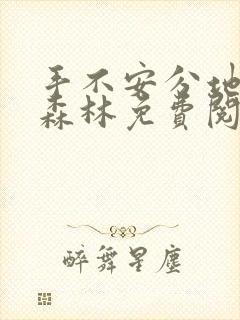 手不安分地
森林免费阅
醉舞星尘